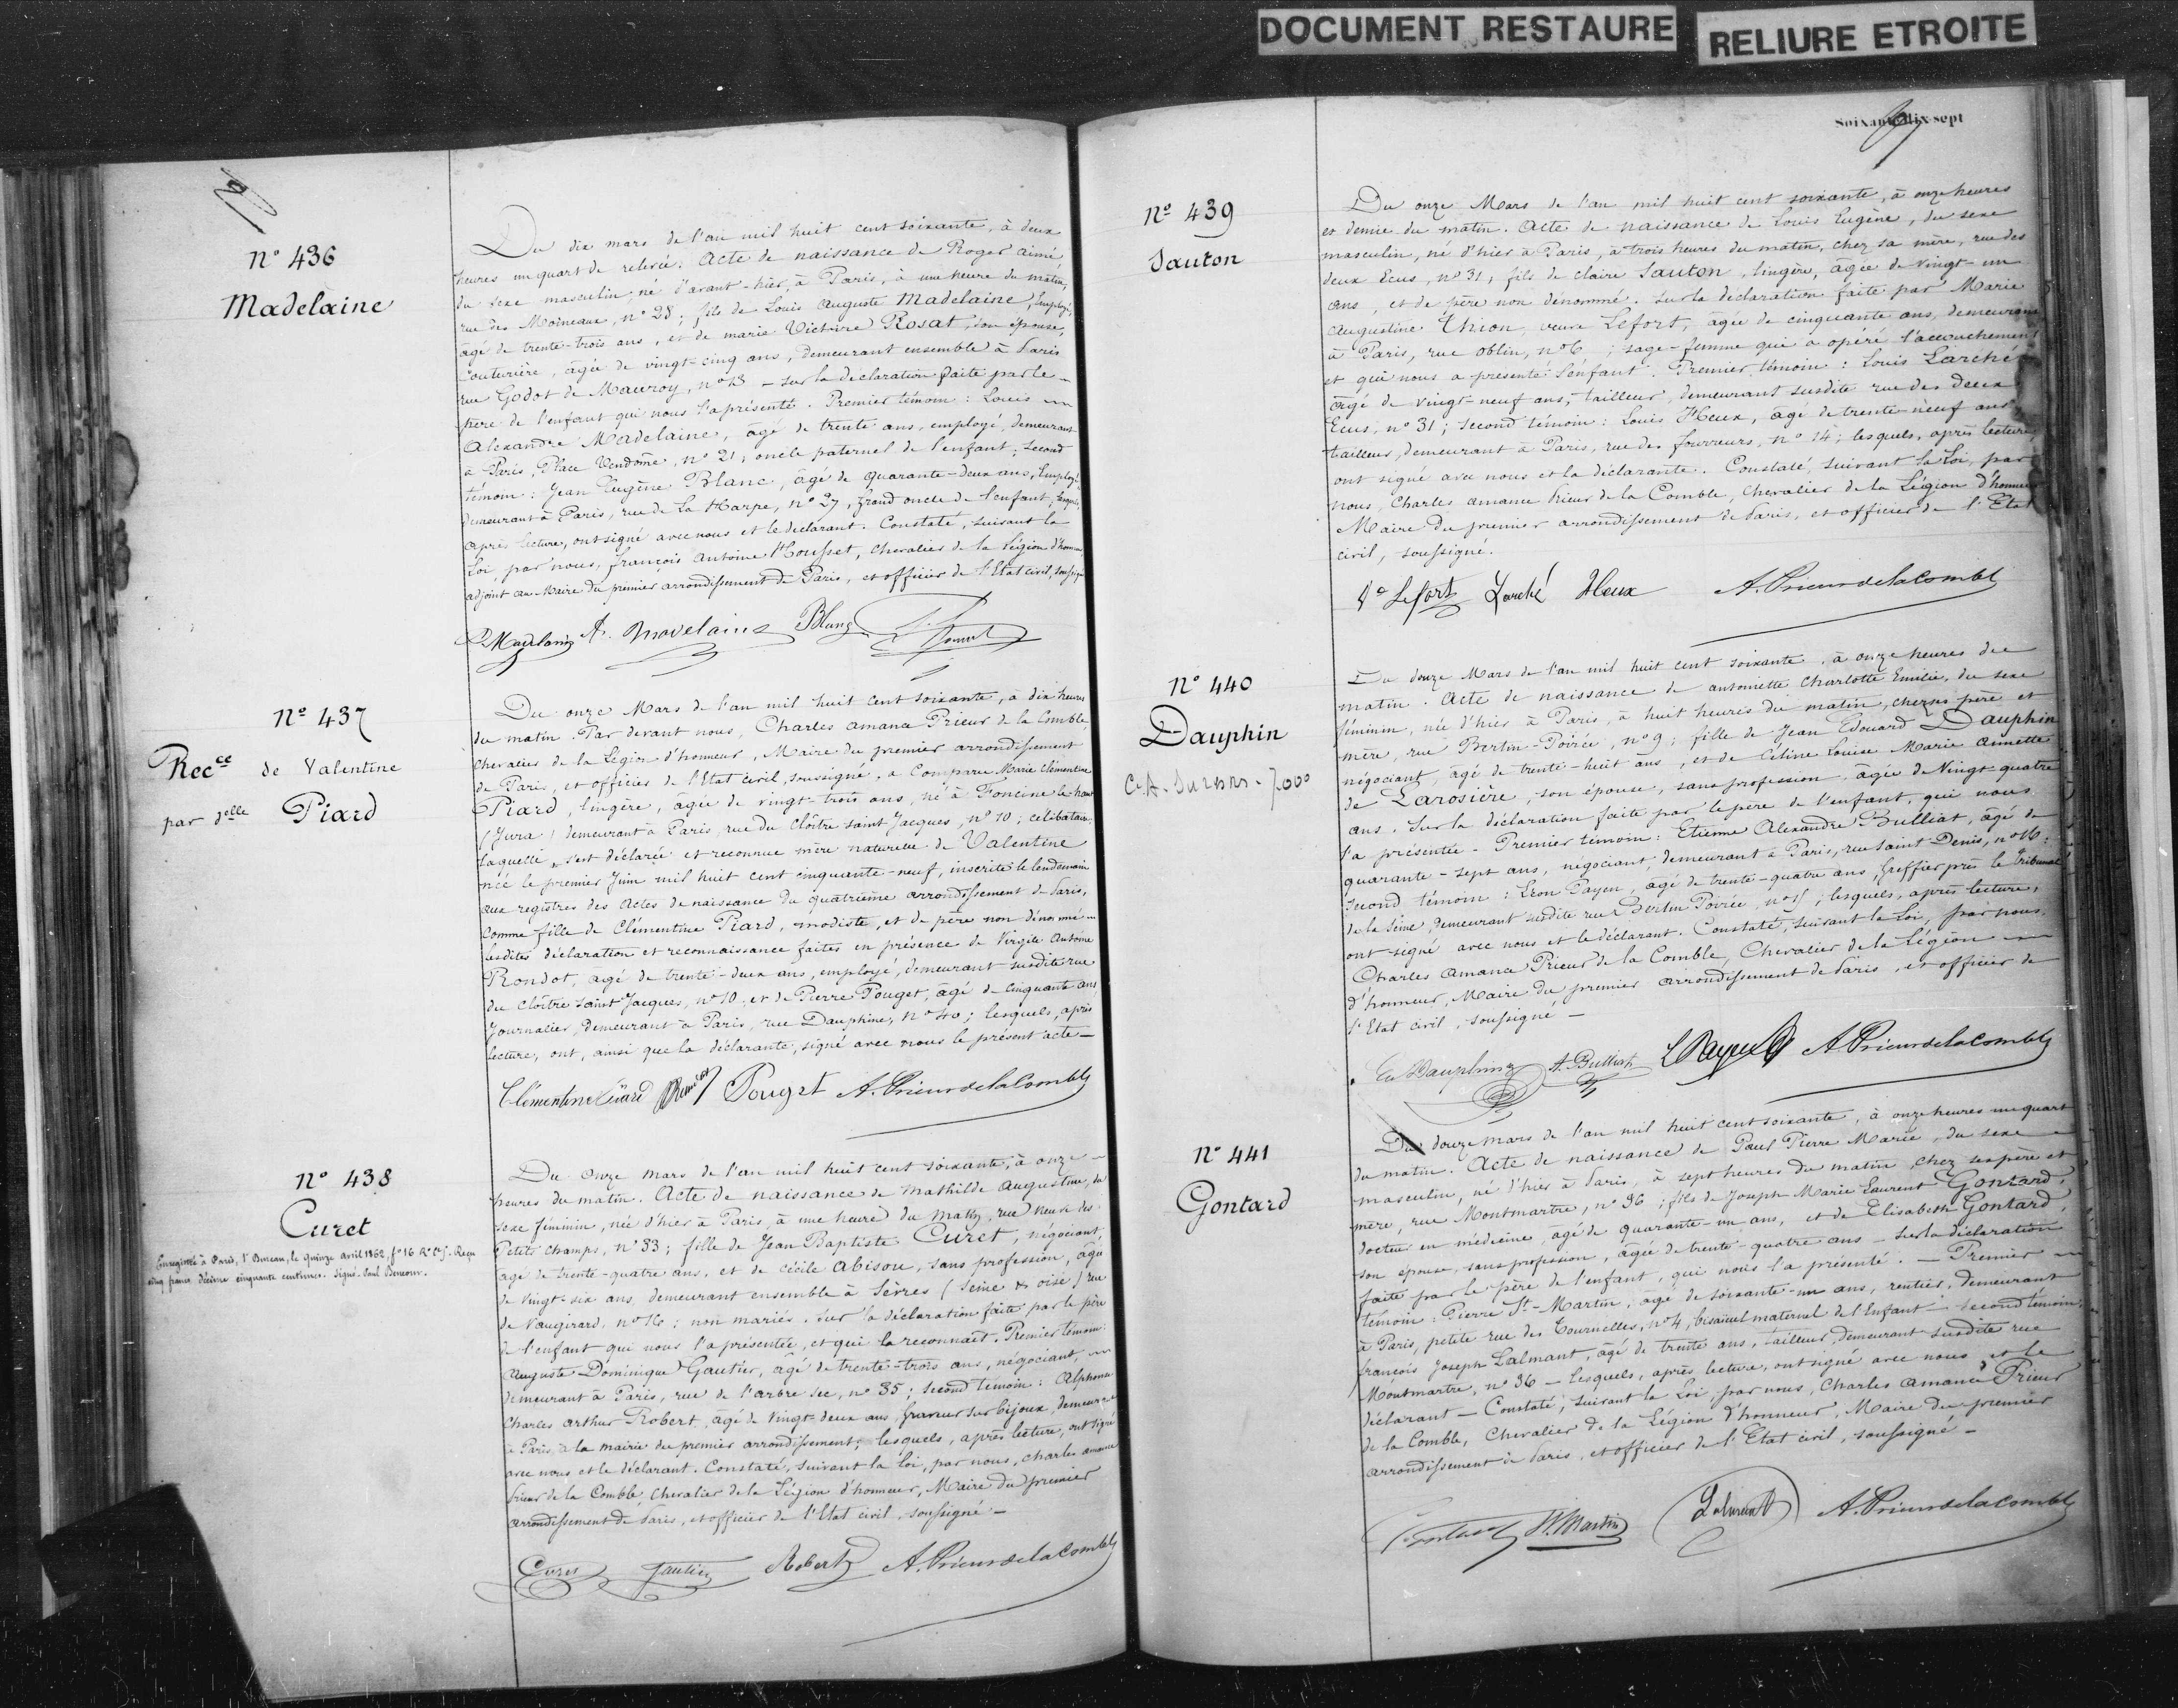 DOCUMENT RESTAURE
RELIURE ETROITE
N° 436
Madelaine
Du dix mars de l'an mil huit cent soixante, à deux
heures un quart de relevée. Acte de naissance de Roger aimé
du sexe masculin, né d'avant-hier, à Paris, à une heure du matin,
rue des Moineaux, n° 28; fils de Louis Auguste Madelaine, Employé,
âgé de trente-trois ans, et de marie Victoire Rosat, son épouse,
Couturière, âgée de vingt-cinq ans, demeurant ensemble à Paris
rue Godot de Mauroy, n° 13 – sur la déclaration faite par le
père de l'enfant qui nous l'a présenté. Premier témoin : Louis
Alexandre Madelaine, âgé de trente ans, employé, demeurant
à Paris, Place Vendôme, n° 21, oncle paternel de l'enfant; second
témoin : Jean Eugène Blanc, âgé de quarante-deux ans, Employé
demeurant à Paris, rue de La Harpe, n° 27, grand oncle de l'enfant, lesquels,
après lecture, ont signé avec nous et le déclarant. Constaté, suivant la
Loi, par nous, françois Antoine Housset, Chevalier de la Légion d'honneur,
adjoint au Maire du premier arrondissement de Paris, et officier de l'Etat civil, soussigné
Madelaine A. Madelaine Blanc
N° 437
Recce de Valentine
par Delle Piard
Du onze Mars de l'an mil huit cent soixante, à dix heures
du matin. Par devant nous, Charles amance Prieur de la Comble,
chevalier de la Légion d'honneur, Maire du premier arrondissement
de Paris, et officier de l'Etat civil, soussigné, a Comparu Marie Clémentine
Piard, lingère, âgée de vingt-trois ans, né à Foncine le haut
(Jura) demeurant à Paris, rue du Cloître saint Jacques, n° 10; célibataire,
laquelle s'est déclarée et reconnue mère naturelle de Valentine
née le premier Juin mil huit cent cinquante-neuf, inscrite le lendemain
aux registres des Actes de naissance du quatrième arrondissement de Paris,
comme fille de Clémentine Piard, modiste, et de père non dénommé
lesdites déclaration et reconnaissance faites en présence de Virgile Antoine
Rondot, âgé de trente-deux ans, employé, demeurant susdite rue
du Cloître saint Jacques, n° 10, et de Pierre Pouget, âgé de cinquante ans,
Journalier, demeurant à Paris, rue Dauphine, n° 40; lesquels, après
lecture, ont, ainsi que la déclarante, signé avec nous le présent acte –
Clémentine Piard Pouget A. Prieur de la Comble
N° 438
Curet
Enregistré à Paris, 1er Bureau, le quinze avril 1862, f° 16 Reçu
cinq francs décime cinquante centimes. signé
Du Onze Mars de l'an mil huit cent soixante, à onze
heures du matin. Acte de naissance de Mathilde augustine, du
sexe féminin, née d'hier à Paris, à une heure du matin, rue Neuve des
Petits champs, n° 33; fille de Jean Baptiste Curet, négociant,
âgé de trente-quatre ans, et de cécile abisou, sans profession, âgée
de vingt-six ans, demeurant ensemble à Sèvres (Seine & oise) rue
de Vaugirard, n° 16; non mariés. Sur la déclaration faite par le père
de l'enfant qui nous l'a présentée, et qui la reconnaît. Premier témoin :
Auguste Dominique Gautier, âgé de trente-trois ans, négociant,
demeurant à Paris, rue de l'arbre sec, n° 35; second témoin : Alphonse
Charles arthur Robert, âgé de vingt-deux ans, graveur sur bijoux, demeurant
à Paris, à la mairie du premier arrondissement; lesquels, après lecture, ont signé
avec nous et le déclarant. Constaté, suivant la loi, par nous, charles amance
Prieur de la Comble, Chevalier de la Légion d'honneur, Maire du premier
arrondissement de Paris, et officier de l'Etat civil, soussigné –
Curet Gautier Robert A. Prieur de la Comble
Soixante-dix-sept
N° 439
Sauton
Du onze Mars de l'an mil huit cent soixante, à onze heures
et demie du matin. Acte de naissance de Louis Eugène, du sexe
masculin, né d'hier à Paris, à trois heures du matin, chez sa mère, rue des
deux Ecus, n° 31; fils de claire Sauton, lingère, âgée de vingt-un
ans, et de père non dénommé. Sur la déclaration faite par Marie
Augustine Thion, veuve Lefort, âgée de cinquante ans, demeurant
à Paris, rue Oblin, n° 6; sage-femme qui a opéré l'accouchement
et qui nous a présenté l'enfant. Premier témoin : Louis Larché
âgé de vingt-neuf ans, tailleur, demeurant susdite rue des deux
Ecus, n° 31; second témoin : Louis Heux, âgé de trente-neuf ans,
tailleur, demeurant à Paris, rue des fourreurs, n° 14; lesquels, après lecture,
ont signé avec nous et la déclarante. Constaté, suivant la Loi, par
nous, Charles amance Prieur de la Comble, Chevalier de la Légion d'honneur
Maire du premier arrondissement de Paris, et officier de l'Etat
civil, soussigné.
Ve Lefort Larché Heux A. Prieur de la Comble
N° 440
Dauphin
Du douze Mars de l'an mil huit cent soixante, à onze heures du
matin. Acte de naissance de antoinette Charlotte Emilie, du sexe
féminin, née d'hier à Paris, à huit heures du matin, chez ses père et
mère, rue Bertin-Poirée, n° 9; fille de Jean Edouard Dauphin
négociant, âgé de trente-huit ans, et de Céline Louise Marie Aimette
de Larosière, son épouse, sans profession, âgée de Vingt-quatre
ans. Sur la déclaration faite par le père de l'enfant, qui nous
l'a présentée – Premier témoin : Etienne Alexandre Bulliat, âgé de
quarante-sept ans, négociant, demeurant à Paris, rue Saint Denis, n° 16;
second témoin : Léon Payen, âgé de trente-quatre ans, greffier près le tribunal
de la Seine, demeurant susdite rue Bertin Poirée; lesquels, après lecture,
ont signé avec nous et le déclarant. Constaté, suivant la Loi, par nous,
Charles Amance Prieur de la Comble, Chevalier de la Légion
d'honneur, Maire du premier arrondissement de Paris, et officier de
l'Etat civil, soussigné –
Ed Dauphin A. Bulliat L Payen A. Prieur de la Comble
N° 441
Gontard
Du douze mars de l'an mil huit cent soixante, à onze heures un quart
du matin. Acte de naissance de Paul Pierre Marie, du sexe
masculin, né d'hier à Paris, à sept heures du matin, chez ses père et
mère, rue Montmartre, n° 36; fils de Joseph Marie Laurent Gontard,
docteur en médecine, âgé de quarante-un ans, et de Elisabeth Gontard,
son épouse, sans profession, âgée de trente-quatre ans – sur la déclaration
faite par le père de l'enfant, qui nous l'a présenté. – Premier
témoin : Pierre St-Martin, âgé de soixante-un ans, rentier, demeurant
à Paris, petite rue des Tournelles, n° 4, bisaïeul maternel de l'Enfant – second témoin :
françois Joseph Lalmant, âgé de trente ans, tailleur, demeurant susdite rue
Montmartre, n° 36 – lesquels, après lecture, ont signé avec nous et le
déclarant – Constaté, suivant la Loi, par nous, Charles amance Prieur
de la Comble, Chevalier de la Légion d'honneur, Maire du premier
arrondissement de Paris, et officier de l'Etat civil, soussigné –
Gontard St. Martin A. Prieur de la Comble